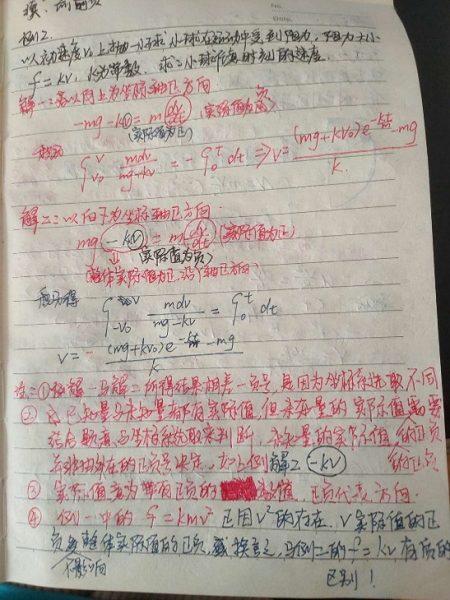 例2.
以初速度V₀上抛一小球,小球在运动中受到阻力,阻力大小
f=kv,k为常数,求:小球任意时刻的速度.
解一:若以向上为坐标轴正方向
-mg-kv=m dv/dt (实际值为负)
(实际值为正)
∫_{v₀}^{v} mdv/(mg+kv) = -∫_0^t dt ⇒ V= ((mg+kv₀)e^{-kt/m}-mg)/k
解二:以向下为坐标轴正方向
mg-kv=m dv/dt (实际值为正)
(实际值为负)
(整体实际值为正,沿y轴正方向)
∫_{-v₀}^{v} mdv/(mg-kv) = ∫_0^t dt
V=-((mg+kv₀)e^{-kt/m}-mg)/k
注:①解一与解二所得结果相差一负号,是因为坐标系选取不同
②已知量与未知量都有实际值,但未知量的实际值需要
结合题意与坐标系选取来判断,未知量的实际值的正负
并非由外在的正负号决定,如上例解二 -kv 的正负
③实际值意为带有正负的数值,正负代表方向.
④例一中的 f=kmv² 正因v²的存在,V实际值的正
负不影响整体实际值的正负,换言之,与例二的f=kv有质的
区别!